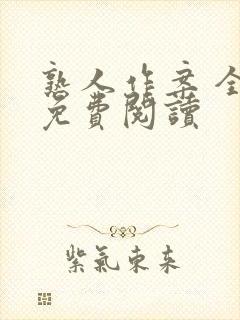 熟人作案全
免費閱讀
紫氣東来